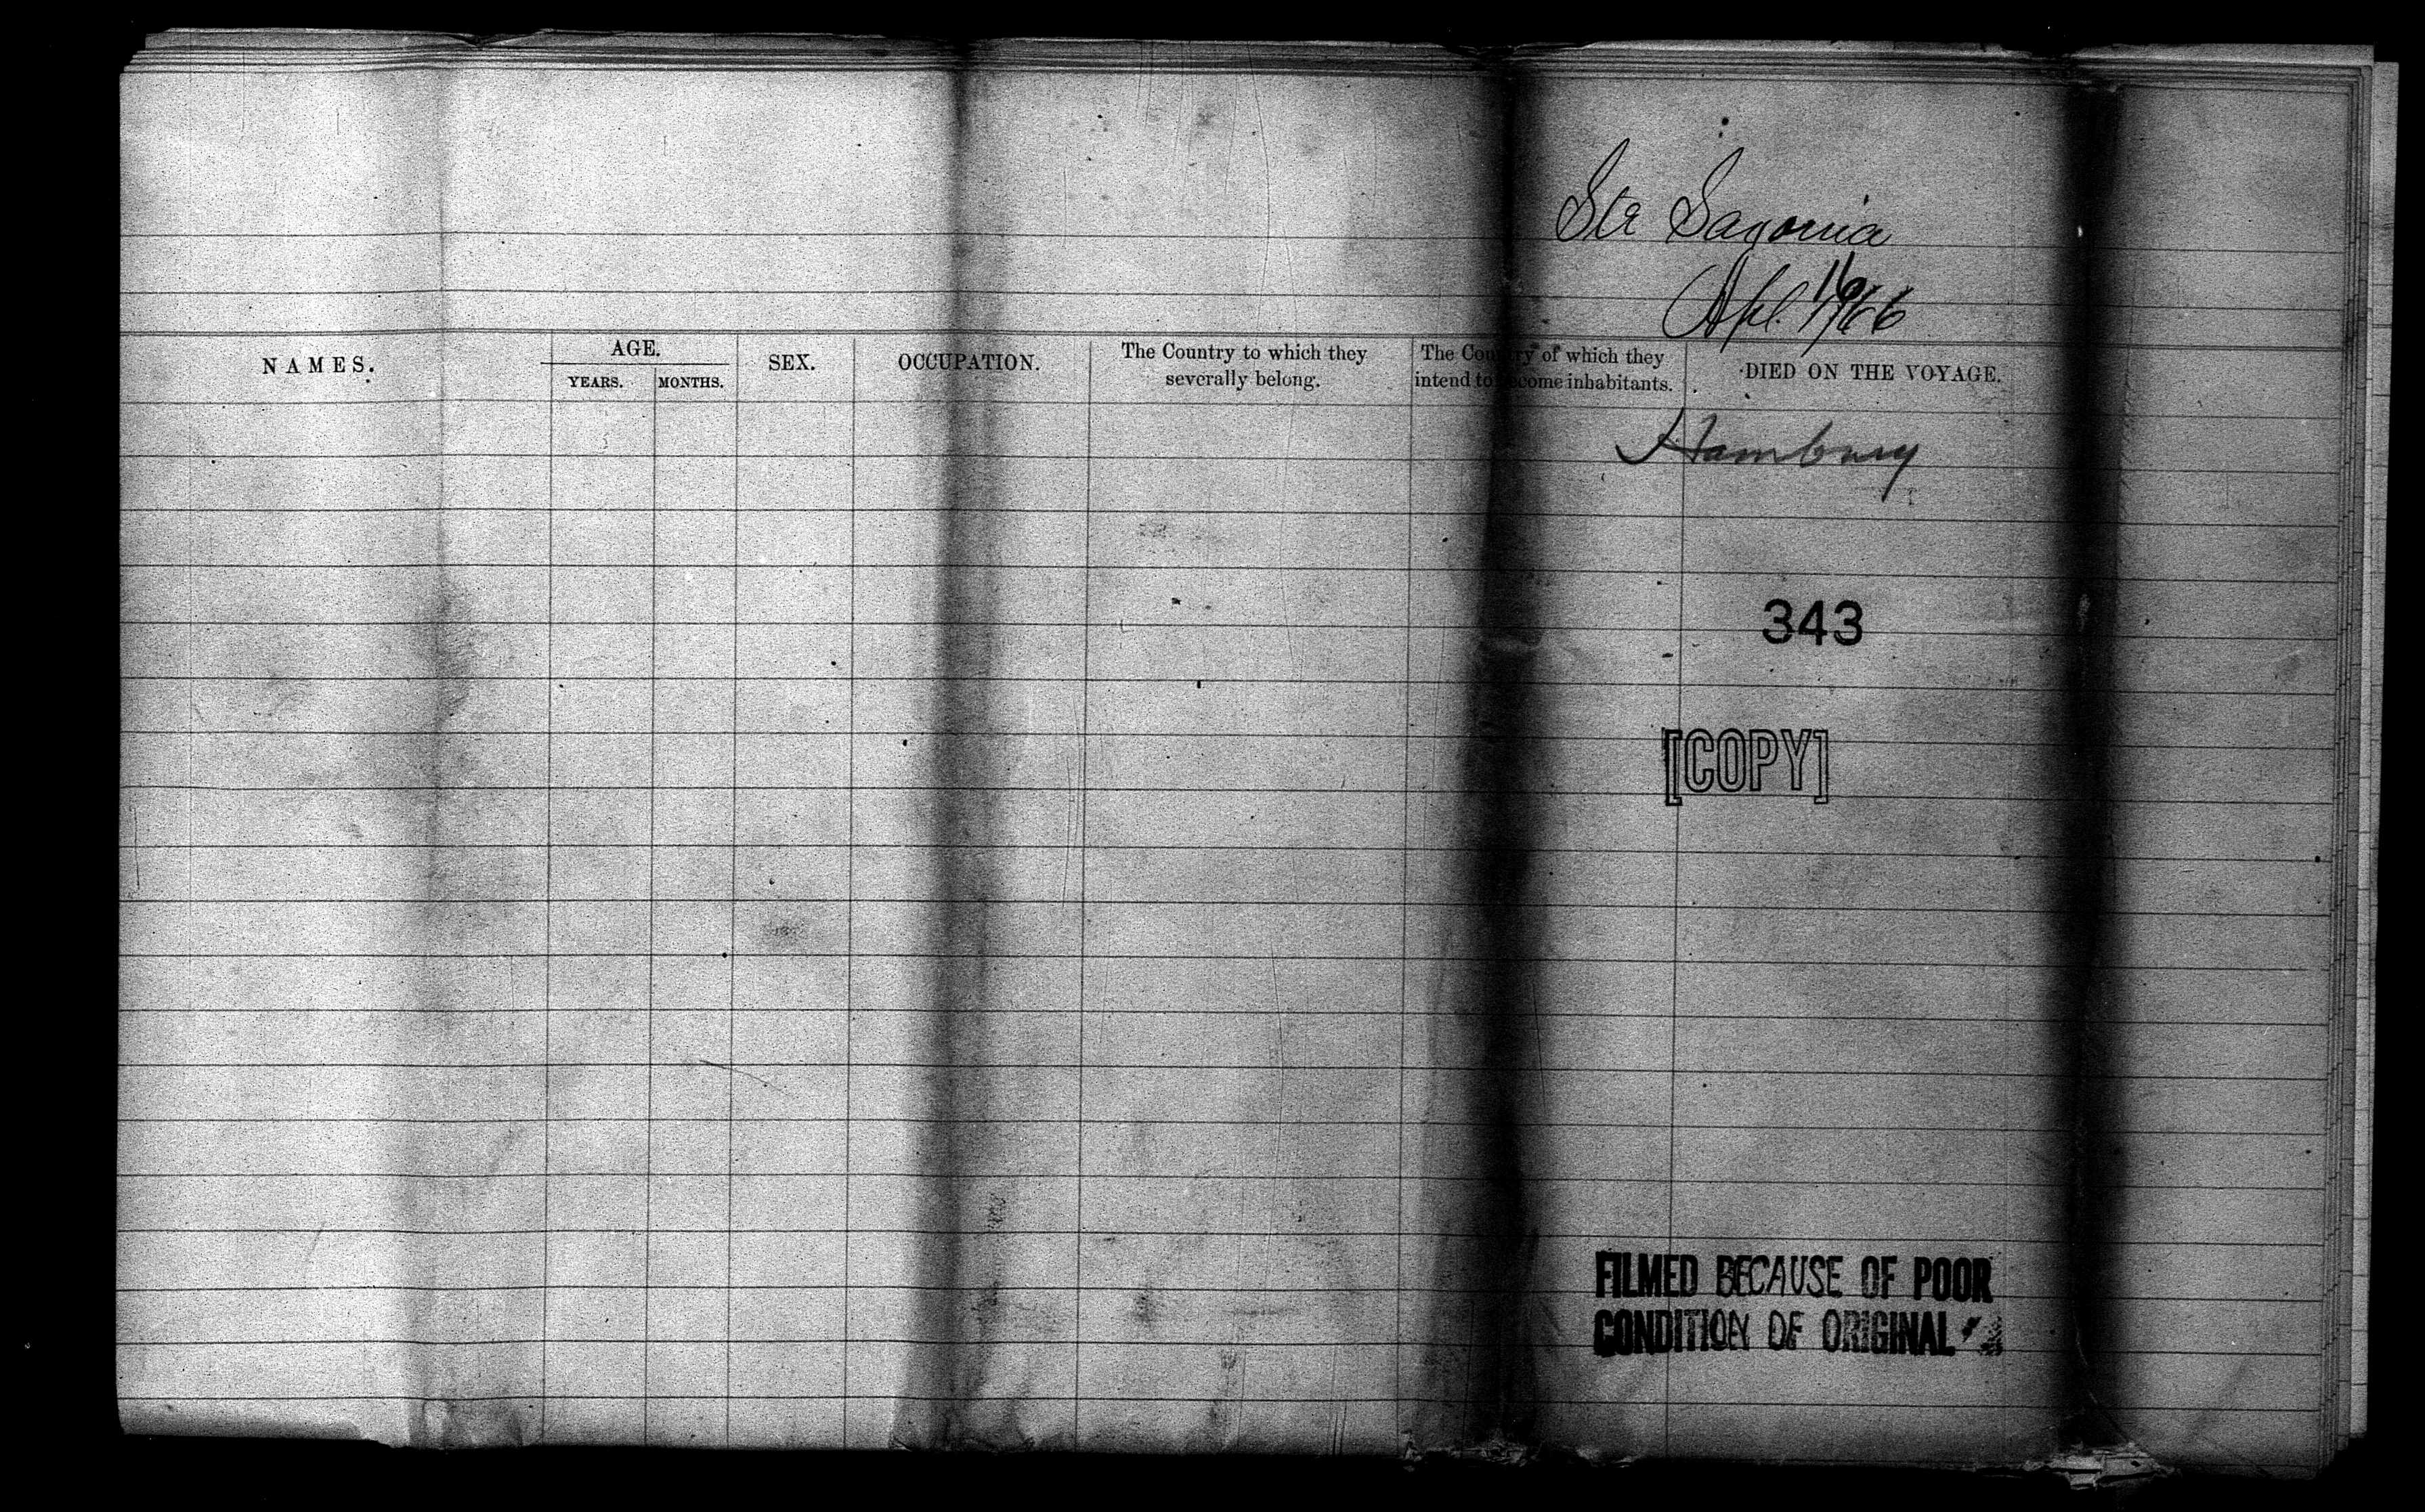 Str Saxonia
Apl. 16/66
NAMES.
AGE.
YEARS. MONTHS.
SEX.
OCCUPATION.
The Country to which they
severally belong.
The Country of which they
intend to become inhabitants.
DIED ON THE VOYAGE.
Hamburg
343
[COPY]
FILMED BECAUSE OF POOR
CONDITION OF ORIGINAL